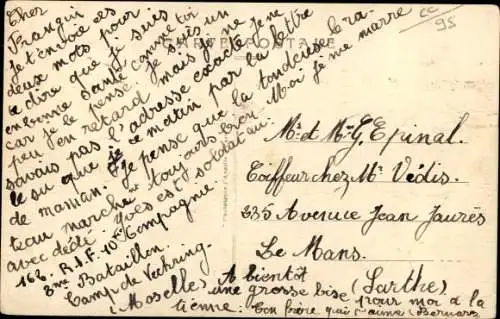 CARTE POSTALE
Cher
Frangui
Je t'envoie ces
deux mots pour
te dire que je suis
en bonne santé comme toi
car je le pense. Je suis un
peu en retard mais je ne
savais pas l'adresse exacte, je ne
le su que ce matin par la lettre
de maman. Je pense que la tondeuse bra-
teau marche toujours bien. Moi je me marre
avec dédé. Yves est soldat au
162. R.I.F. 10e Compagnie.
3me Bataillon.
Camp de Veckring.
(Moselle)
A bientôt
une grosse bise pour moi à la
tienne. Ton frère qui t'aime (Bernard)
Mr et Mme G. Epinal.
Coiffeur chez Mr Védis.
235 Avenue Jean Jaurès
Le Mans.
(Sarthe)
95